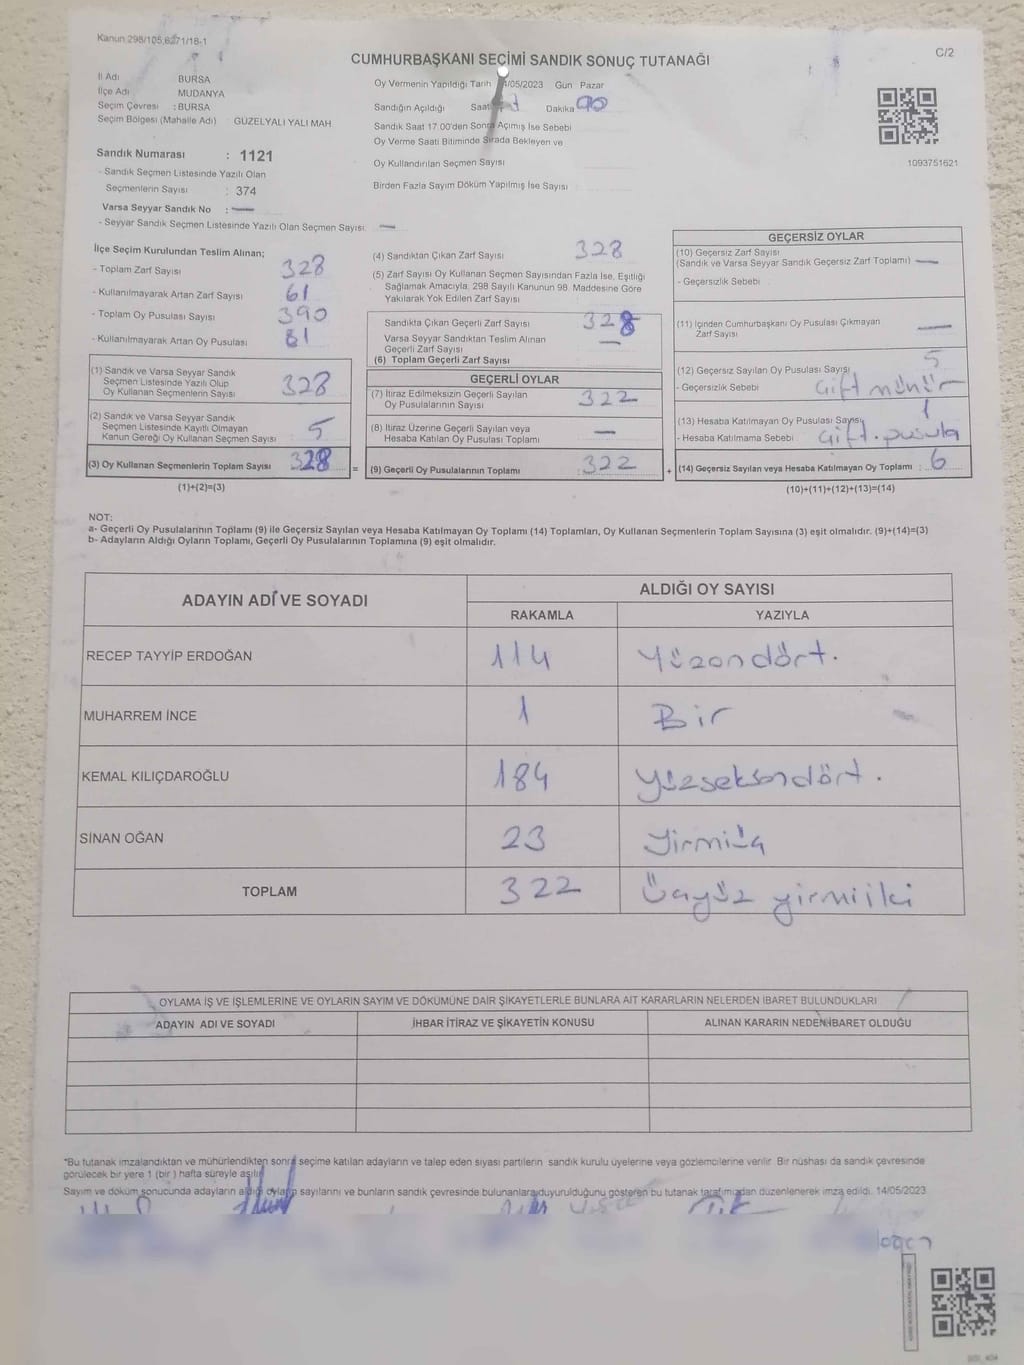 Kanun 298/105,6271/18-1
C/2
CUMHURBAŞKANI SEÇİMİ SANDIK SONUÇ TUTANAĞI
İl Adı BURSA
İlçe Adı MUDANYA
Seçim Çevresi : BURSA
Seçim Bölgesi (Mahalle Adı) GÜZELYALI YALI MAH
Oy Vermenin Yapıldığı Tarih /05/2023 Gün Pazar
Sandığın Açıldığı Saat Dakika 00
Sandık Saat 17:00'den Sonra Açımış İse Sebebi
Oy Verme Saati Bitiminde Sırada Bekleyen ve
Oy Kullandırılan Seçmen Sayısı
Birden Fazla Sayım Döküm Yapılmış İse Sayısı
1093751621
Sandık Numarası : 1121
- Sandık Seçmen Listesinde Yazılı Olan
Seçmenlerin Sayısı : 374
Varsa Seyyar Sandık No : —
- Seyyar Sandık Seçmen Listesinde Yazılı Olan Seçmen Sayısı: —
İlçe Seçim Kurulundan Teslim Alınan;
- Toplam Zarf Sayısı 328
- Kullanılmayarak Artan Zarf Sayısı 61
- Toplam Oy Pusulası Sayısı 390
- Kullanılmayarak Artan Oy Pusulası 81
(1) Sandık ve Varsa Seyyar Sandık
Seçmen Listesinde Yazılı Olup
Oy Kullanan Seçmenlerin Sayısı 328
(2) Sandık ve Varsa Seyyar Sandık
Seçmen Listesinde Kayıtlı Olmayan
Kanun Gereği Oy Kullanan Seçmen Sayısı 5
(3) Oy Kullanan Seçmenlerin Toplam Sayısı 328
(1)+(2)=(3)
(4) Sandıktan Çıkan Zarf Sayısı 328
(5) Zarf Sayısı Oy Kullanan Seçmen Sayısından Fazla İse, Eşitliği
Sağlamak Amacıyla, 298 Sayılı Kanunun 98. Maddesine Göre
Yakılarak Yok Edilen Zarf Sayısı
Sandıkta Çıkan Geçerli Zarf Sayısı 328
Varsa Seyyar Sandıktan Teslim Alınan
Geçerli Zarf Sayısı —
(6) Toplam Geçerli Zarf Sayısı
GEÇERLİ OYLAR
(7) İtiraz Edilmeksizin Geçerli Sayılan
Oy Pusulalarının Sayısı 322
(8) İtiraz Üzerine Geçerli Sayılan veya
Hesaba Katılan Oy Pusulası Toplamı —
= (9) Geçerli Oy Pusulalarının Toplamı 322 +
GEÇERSİZ OYLAR
(10) Geçersiz Zarf Sayısı
(Sandık ve Varsa Seyyar Sandık Geçersiz Zarf Toplamı) —
- Geçersizlik Sebebi
(11) İçinden Cumhurbaşkanı Oy Pusulası Çıkmayan
Zarf Sayısı —
(12) Geçersiz Sayılan Oy Pusulası Sayısı 5
- Geçersizlik Sebebi Çift mühür
(13) Hesaba Katılmayan Oy Pusulası Sayısı 1
- Hesaba Katılmama Sebebi Çift.pusula
(14) Geçersiz Sayılan veya Hesaba Katılmayan Oy Toplamı : 6
(10)+(11)+(12)+(13)=(14)
NOT:
a- Geçerli Oy Pusulalarının Toplamı (9) ile Geçersiz Sayılan veya Hesaba Katılmayan Oy Toplamı (14) Toplamları, Oy Kullanan Seçmenlerin Toplam Sayısına (3) eşit olmalıdır. (9)+(14)=(3)
b- Adayların Aldığı Oyların Toplamı, Geçerli Oy Pusulalarının Toplamına (9) eşit olmalıdır.
ADAYIN ADI VE SOYADI
ALDIĞI OY SAYISI
RAKAMLA YAZIYLA
RECEP TAYYİP ERDOĞAN 114 Yüzondört.
MUHARREM İNCE 1 Bir
KEMAL KILIÇDAROĞLU 184 Yüzseksendört.
SİNAN OĞAN 23 Yirmiüç
TOPLAM 322 Üçyüz yirmiiki
OYLAMA İŞ VE İŞLEMLERİNE VE OYLARIN SAYIM VE DÖKÜMÜNE DAİR ŞİKAYETLERLE BUNLARA AİT KARARLARIN NELERDEN İBARET BULUNDUKLARI
ADAYIN ADI VE SOYADI İHBAR İTİRAZ VE ŞİKAYETİN KONUSU ALINAN KARARIN NEDEN İBARET OLDUĞU
*Bu tutanak imzalandıktan ve mühürlendikten sonra seçime katılan adayların ve talep eden siyasi partilerin sandık kurulu üyelerine veya gözlemcilerine verilir. Bir nüshası da sandık çevresinde
görülecek bir yere 1 (bir) hafta süreyle asılır.
Sayım ve döküm sonucunda adayların aldığı oyların sayılarını ve bunların sandık çevresinde bulunanlara duyurulduğunu gösteren bu tutanak tarafımızdan düzenlenerek imza edildi. 14/05/2023